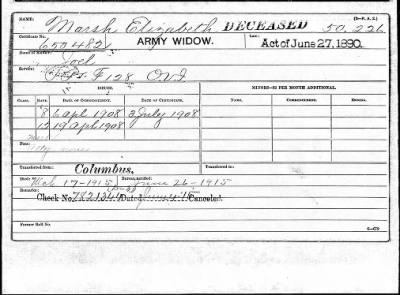 NAME: (3-F. A. Z.)
Marsh Elizabeth DECEASED 50,226
Certificate No. ARMY WIDOW. Law:
650482 Act of June 27, 1890.
Soldier:
Joel
Service:
F 128 O.V.I.
ISSUE. MINORS—$2 PER MONTH ADDITIONAL.
CLASS. RATE. DATE OF COMMENCEMENT. DATE OF CERTIFICATE. NAME. COMMENCEMENT. ENDING.
8 6 Apl 1908 3 July 1908
12 19 Apl 1908
Transferred from: Transferred to:
Columbus,
Died: Mch 17-1915 Bureau notified: June 26-1915
Remarks:
Check No. Dated Canceled.
Former Roll No.
6-679